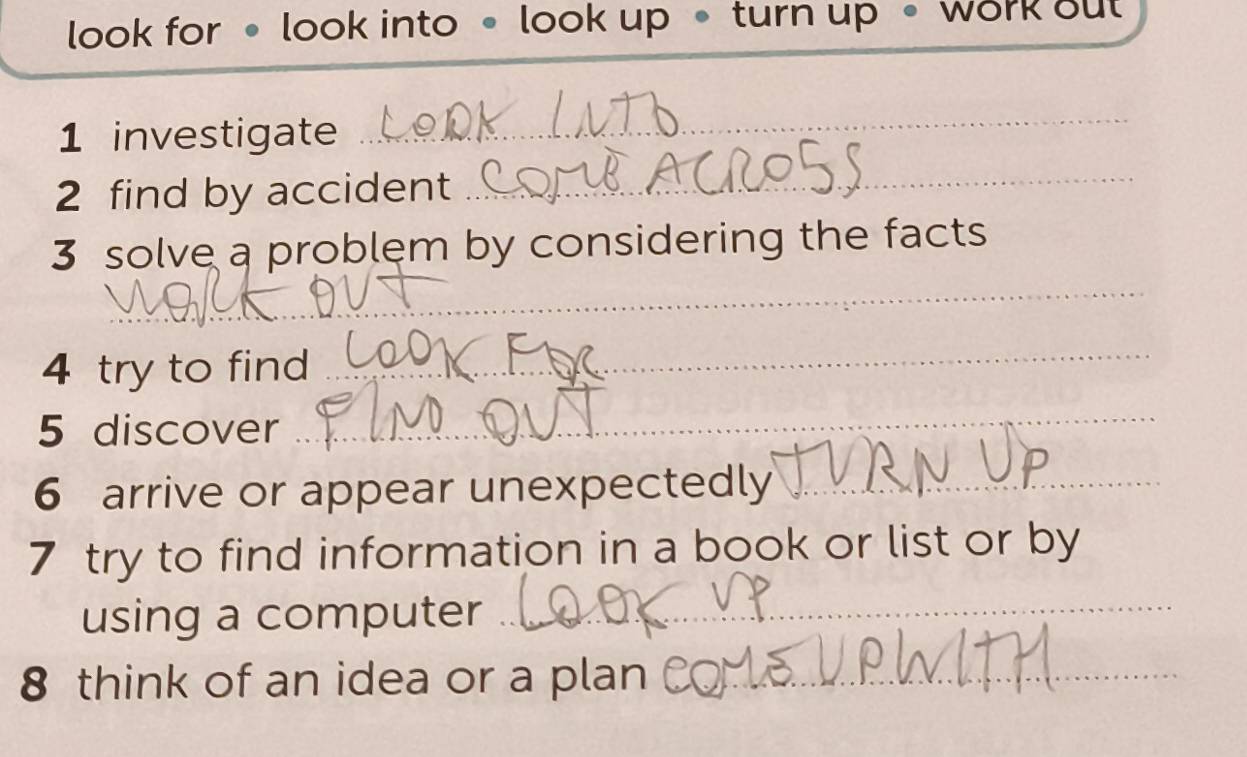 look for • look into • look up • turn up • work out
1 investigate LOOK INTO
2 find by accident COME ACROSS
3 solve a problem by considering the facts
WORK OUT
4 try to find LOOK FOR
5 discover FIND OUT
6 arrive or appear unexpectedly TURN UP
7 try to find information in a book or list or by
using a computer LOOK UP
8 think of an idea or a plan COME UP WITH